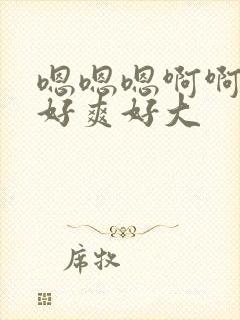 嗯嗯嗯啊啊
好爽好大
席牧